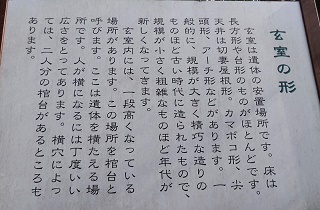 玄室の形
玄室は遺体の安置場所です。床は
長方形や台形のものがほとんどです。
天井は切妻屋根形、カマボコ形、尖
頭形、アーチ形などがあります。一
般的に、規模が大きく精巧な造りの
ものほど古い時代に造られたもので、
規模が小さく粗雑なものほど年代が
新しくなってきます。
玄室内には、一段高くなっている
場所があります。この場所を棺台と
呼びます。ここは遺体を横たえる場
所です。人が横になるには丁度いい
広さをとってあります。横穴によっ
ては、二人分の棺台があるところも
あります。